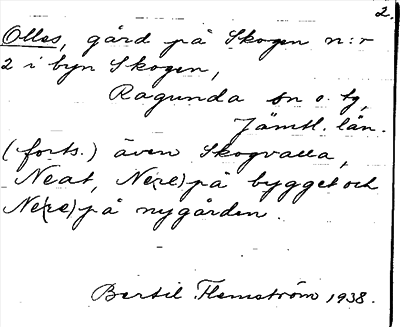 2.
Olles, gård på Skogen n:r
2 i byn Skogen,
Ragunda sn o. tg,
Jämtl. län.
(forts.) även Skogvalla,
Neat, Ne(re) på bygget och
Ne(re) på nygården.
Bertil Flemström 1938.